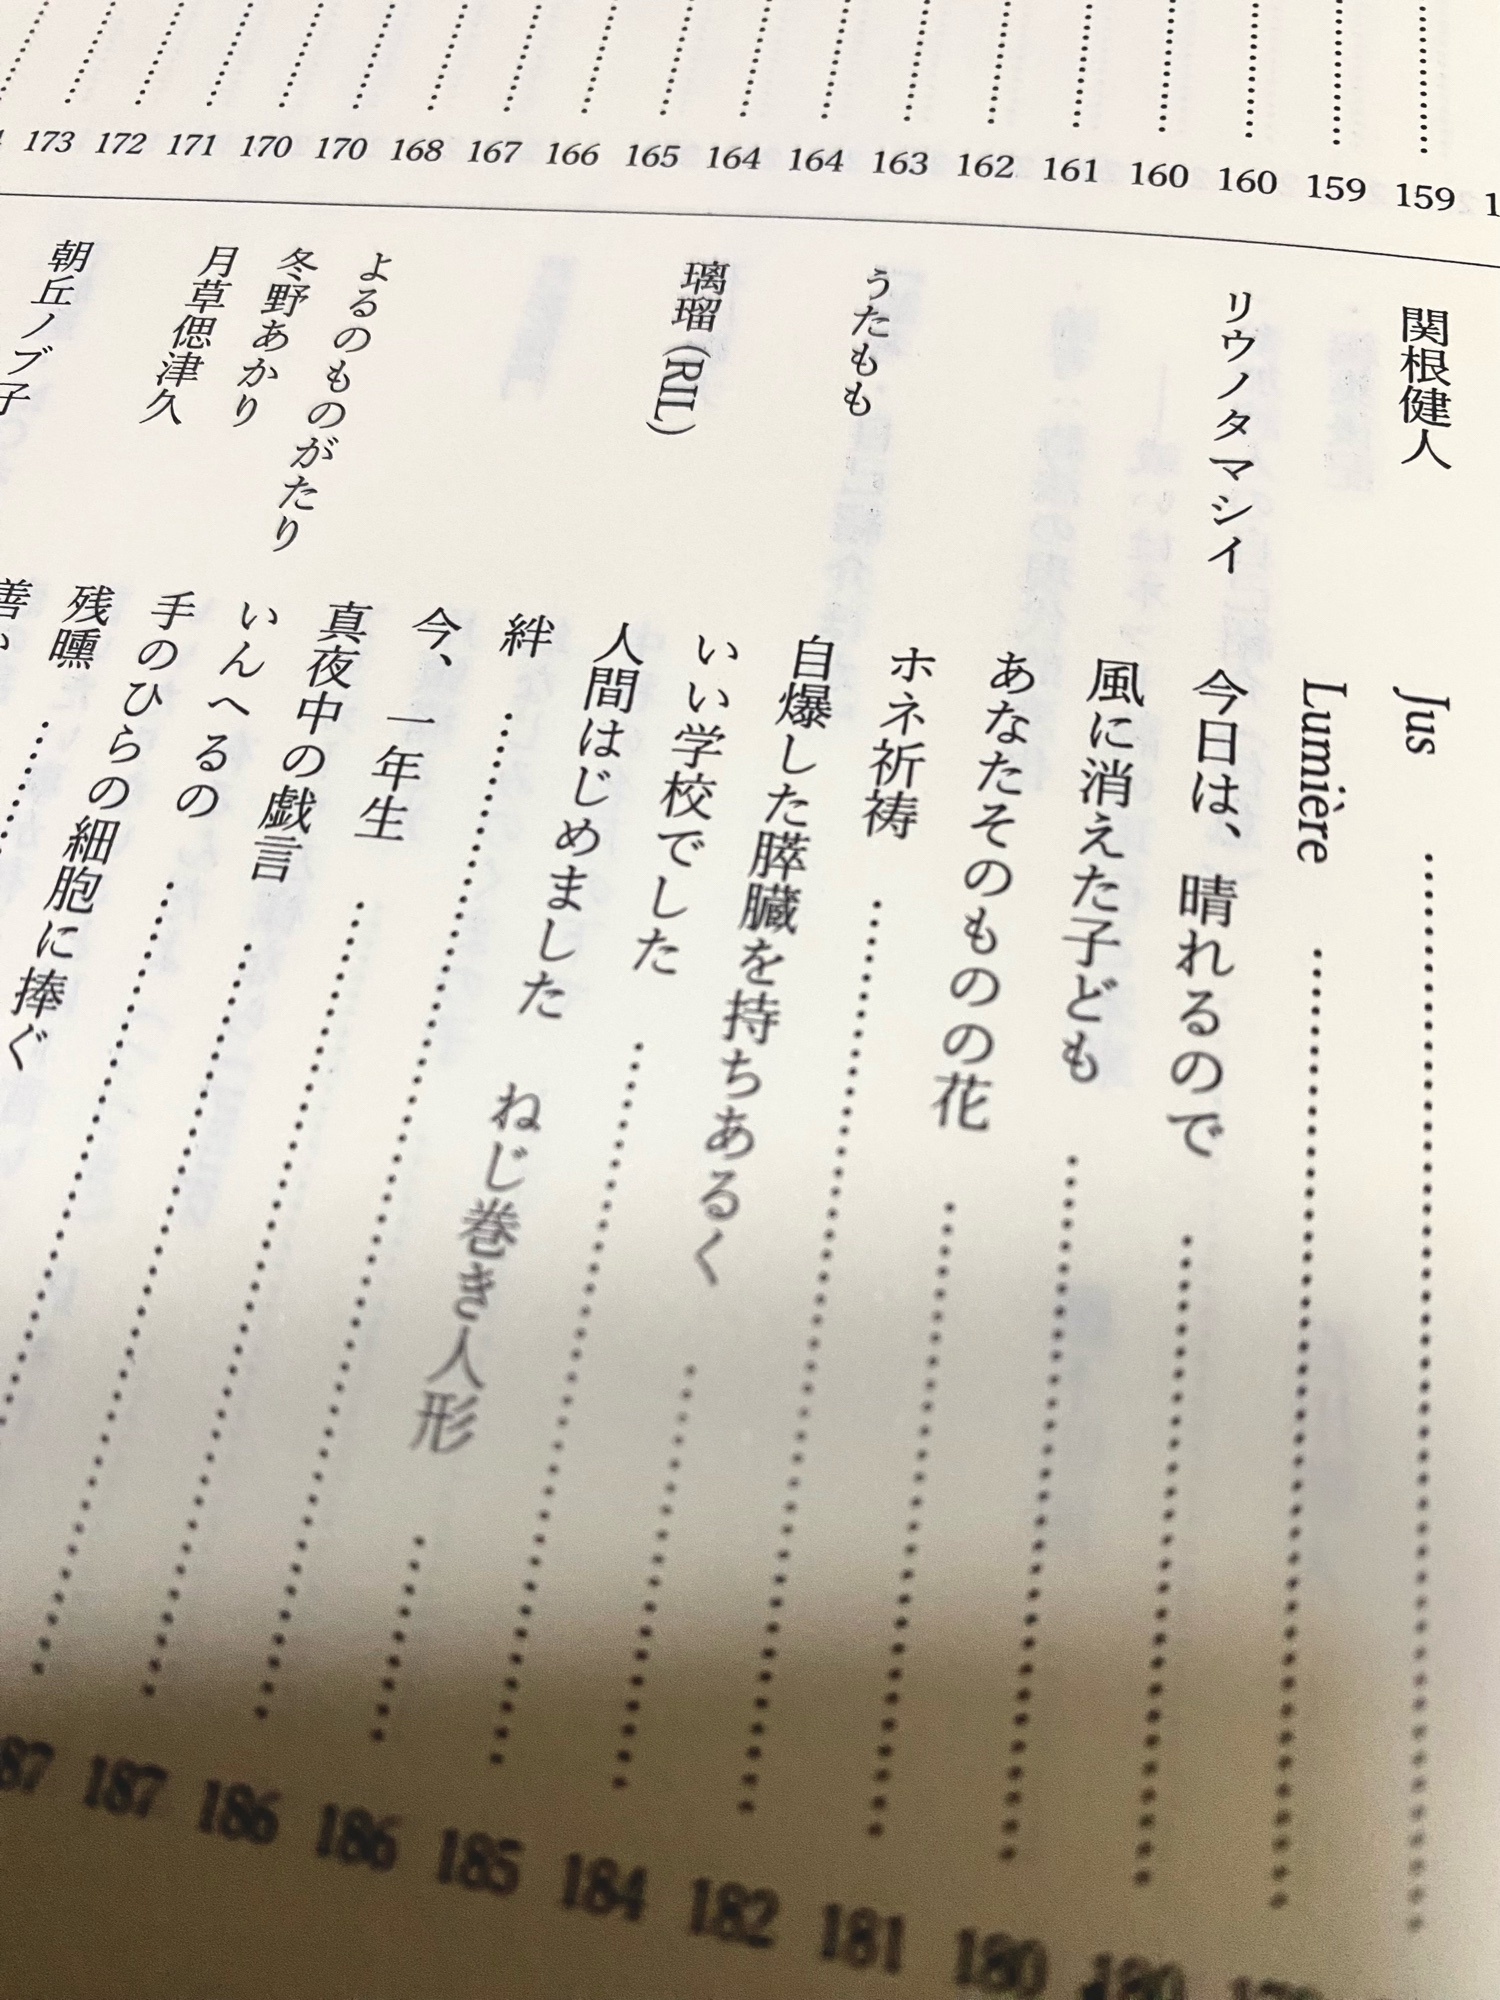 159
159
160
160
161
162
163
164
164
165
166
167
168
170
170
171
172
173
関根健人 Jus
Lumière
リウノタマシイ 今日は、晴れるので 180
風に消えた子ども 180
あなたそのものの花 181
ホネ祈祷 182
うたもも 自爆した膵臓を持ちあるく 184
いい学校でした 185
璃瑠(RIL) 人間はじめました ねじ巻き人形 186
絆 186
今、一年生 187
真夜中の戯言 87
よるのものがたり いんへるの
冬野あかり 手のひらの細胞に捧ぐ
月草偲津久 残曛
朝丘ノブ子 善い